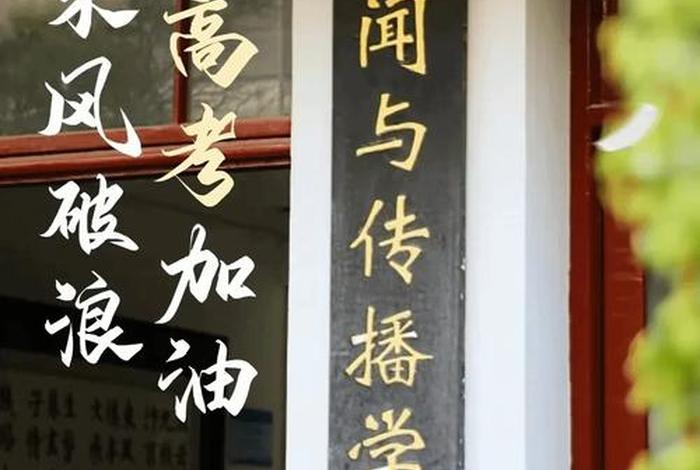 闻与传播学
高考加油
乘风破浪